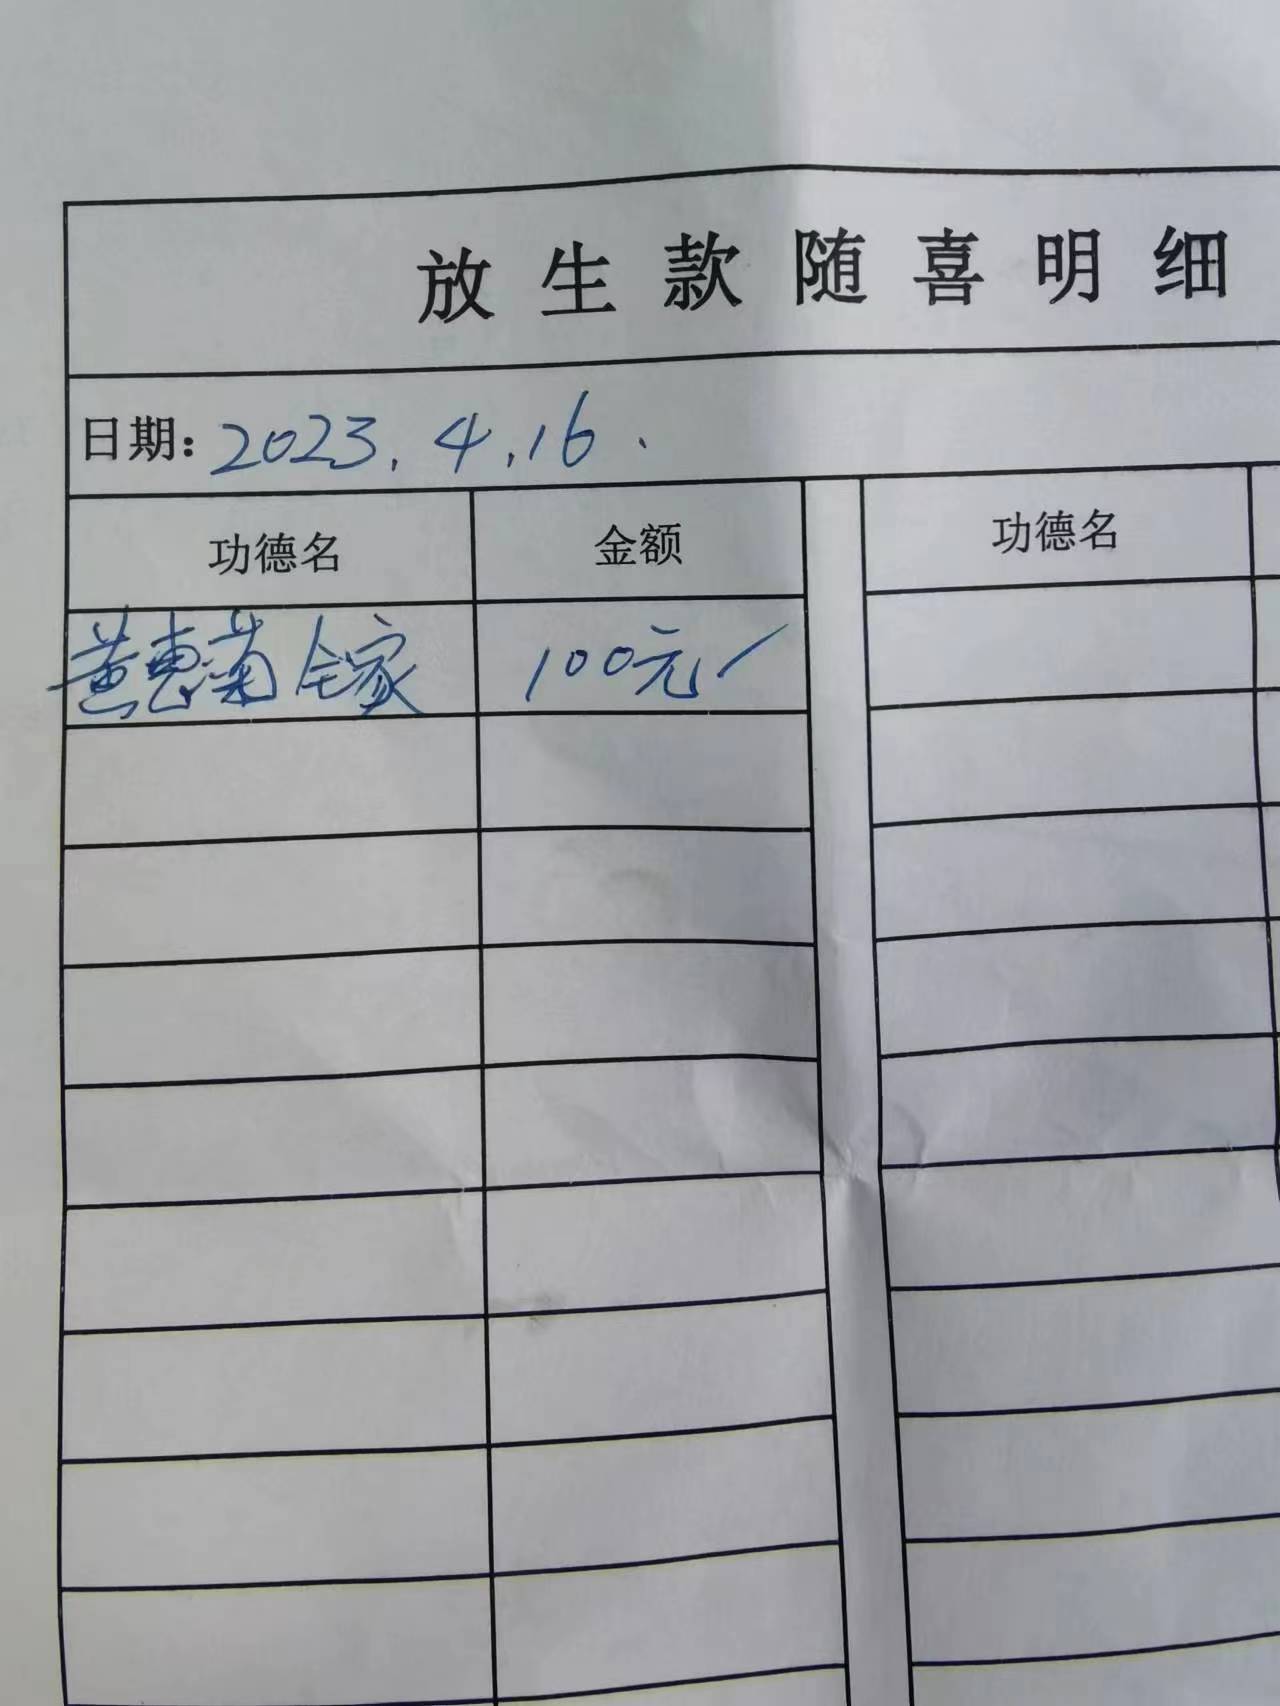 放生款随喜明细
日期：2023.4.16.
功德名 金额 功德名
黄惠菊全家 100元